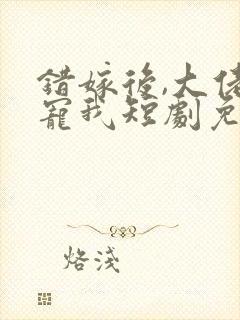 錯嫁後,大佬
寵我短劇免
烙淺